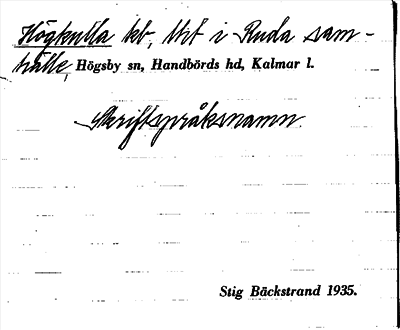 Högkulla lht, tkt i Ruda sam-
hälle, Högsby sn, Handbörds hd, Kalmar l.
Skriftspråksnamn.
Stig Bäckstrand 1935.